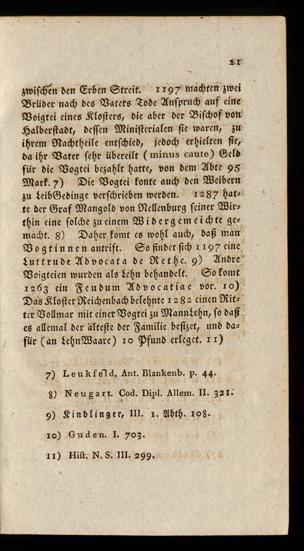 21
zwischen den Erben Streit. 1197 machten zwei
Brüder nach des Vaters Tode Anspruch auf eine
Voigtei eines Klosters, die aber der Bischof von
Halberstadt, dessen Ministerialen sie waren, zu
ihrem Nachtheile entschied, jedoch erhielten sie,
da ihr Vater sehr übereilt (minus caute) Geld
für die Vogtei bezahlt hatte, von dem Abte 95
Mark. 7) Die Vogtei konte auch den Weibern
zu LeibGedinge verschrieben werden. 1287 hat-
te der Graf Mangold von Nellenburg seiner Wir-
thin eine solche zu einem Widergemeichte ge-
macht. 8) Daher komt es wohl auch, daß man
Vogtinnen antrift. So findet sich 1197 eine
Luttrude Advocata de Rethe. 9) Andre
Voigteien wurden als Lehn behandelt. So komt
1263 ein Feudum Advocatiae vor. 10)
Das Kloster Reichenbach belehnte 1282 einen Rit-
ter Vollmar mit einer Vogtei zu MannLehn, so daß
es allemal der älteste der Familie besizet, und da-
für (an LehnWaare) 10 Pfund erleget. 11)
7) Leukfeld, Ant. Blankenb. p. 44.
8) Neugart. Cod. Dipl. Allem. II. 321.
9) Kindlinger, III. 1. Abth. 108.
10) Guden. I. 703.
11) Hist. N. S. III. 299.